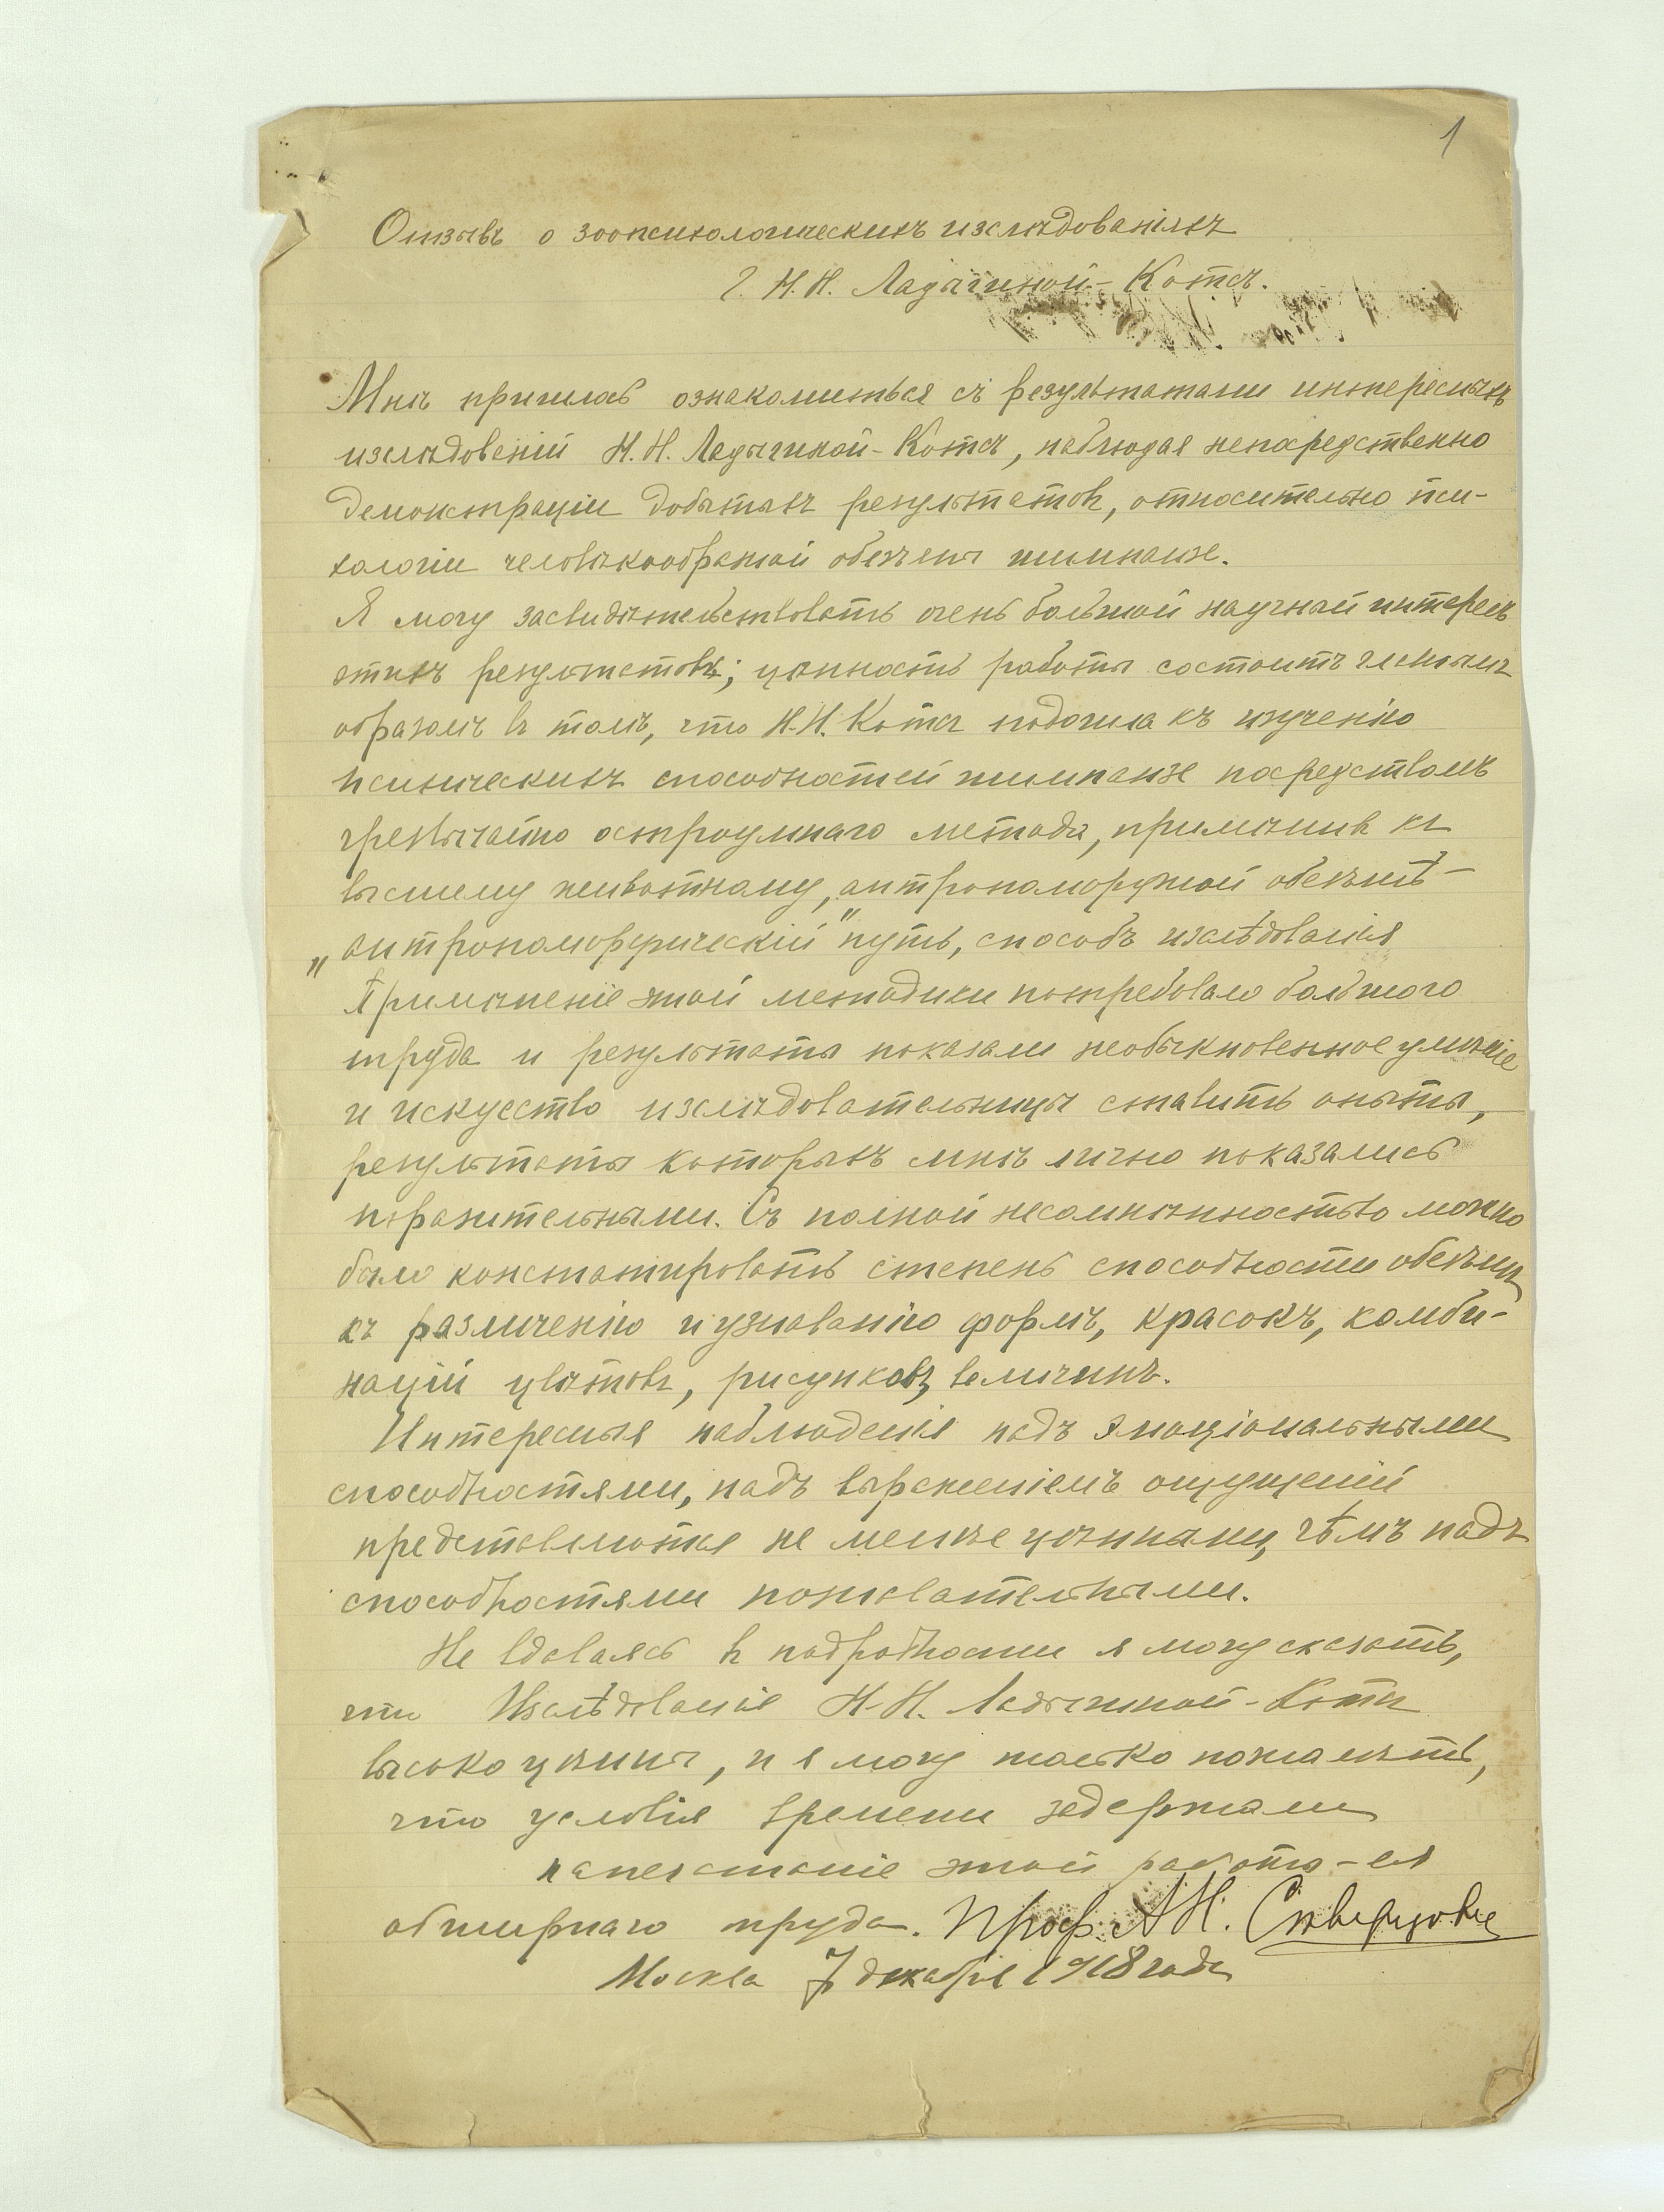 1
Отзывъ о зоопсихологическихъ изслѣдованіяхъ
Г. Н.Н. Ладыгиной-Котсъ.
Мнѣ пришлось ознакомиться съ результатами интересныхъ
изслѣдованій Н.Н. Ладыгиной-Котсъ, наблюдая непосредственно
демонстраціи добытыхъ результатовъ, относительно пси-
хологіи человѣкообразной обезьяны шимпанзе.
Я могу засвидѣтельствовать очень большой научный интересъ
этихъ результатовъ; цѣнность работы состоитъ главнымъ
образомъ въ томъ, что Н.Н. Котсъ подошла къ изученію
психическихъ способностей шимпанзе посредствомъ
чрезвычайно остроумнаго метода, примѣнивъ къ
высшему животному, антропоморфной обезьянѣ —
„антропоморфическій" путь, способъ изслѣдованія
Примѣненіе этой методики потребовало большого
труда и результаты показали необыкновенное умѣніе
и искусство изслѣдовательницы ставить опыты,
результаты которыхъ мнѣ лично показались
поразительными. Съ полной несомнѣнностью можно
было констатировать степень способности обезьянъ
къ различенію и узнаванію формъ, красокъ, комби-
націй цвѣтовъ, рисунковъ, величинъ.
Интересныя наблюденія надъ эмоціональными
способностями, надъ выраженіемъ ощущеній
представляются не менѣе цѣнными, чѣмъ надъ
способностями познавательными.
Не вдаваясь въ подробности я могу сказать,
что Изслѣдованія Н.Н. Ладыгиной-Котсъ
высоко цѣнны, и я могу только пожалѣть,
что условія времени задержали
напечатаніе этой работы – ея
обширнаго труда. Проф. А.Н. Сѣверцовъ
Москва 7 декабря 1918 года